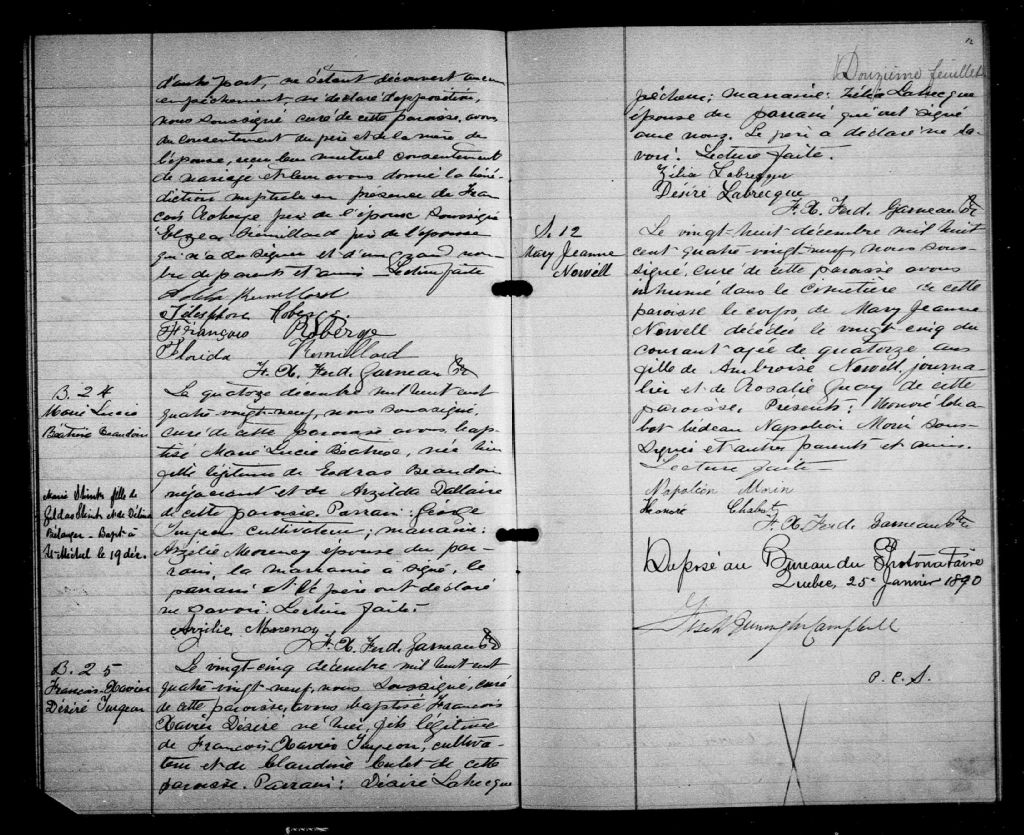 d'autre part, ne s'étant découvert aucun
empêchement, ni déclaré d'opposition,
nous soussigné curé de cette paroisse, avons
du consentement du père et de la mère de
l'épouse, reçu leur mutuel consentement
de mariage et leur avons donné la béné-
diction nuptiale en présence de Fran-
çois Roberge père de l'époux soussigné
Elzear Remillard père de l'épouse
qui n'a su signer et d'un grand nom-
bre de parents et amis Lecture faite
Remillard
Télesphore Roberge.
François Roberge
Florida Remillard
F. X. Ferd. Garneau Ptre
B. 24
Marie Lucie
Béatrice Beaudoin
Le quatorze décembre mil huit cent
quatre vingt-neuf, nous soussigné,
curé de cette paroisse avons bap-
tisé Marie Lucie Béatrice, née hier
fille légitime de Esdras Beaudoin
négociant et de Arzilda Dallaire
de cette paroisse. Parrain: George
Turgeon cultivateur; marraine:
Arzélie Morency épouse du par-
rain, la marraine a signé, le
parrain et le père ont déclaré
ne savoir. Lecture faite.
Arzélie Morency
F. X. Ferd. Garneau Ptre
Marie fille de
Gildas et de Délina
Bélanger - Bapt. à
St-Michel le 19 déc.
B. 25
François-Xavier
Désiré Turgeon
Le vingt-cinq décembre mil huit cent
quatre vingt-neuf, nous soussigné, curé
de cette paroisse, avons baptisé François
Xavier Désiré né hier, fils légitime
de François Xavier Turgeon, cultiva-
teur et de Claudine Boulet de cette
paroisse. Parrain: Désiré Labrecque
12
Douzième feuillet
pêcheur; marraine: Zélia Labrecque
épouse du parrain qui ont signé
avec nous. Le père a déclaré ne sa-
voir. Lecture faite.
Zélia Labrecque
Désiré Labrecque
F. X. Ferd. Garneau Ptre
S. 12
Mary Jeanne
Newell
Le vingt-huit décembre mil huit
cent quatre vingt-neuf, nous sous-
signé, curé de cette paroisse avons
inhumé dans le cimetière de cette
paroisse le corps de Mary Jeanne
Newell décédée le vingt-cinq du
courant agée de quatorze ans
fille de Ambroise Newell, journa-
lier et de Rosalie Guay de cette
paroisse. Présents: Honoré Cha-
bot bédeau Napoléon Morin sous-
signés et autres parents et amis.
Lecture faite
Napoléon Morin
Honoré Chabot
F. X. Ferd. Garneau Ptre
Déposé au Bureau du Protonotaire
Québec, 25e janvier 1890
Campbell
P. C. S.